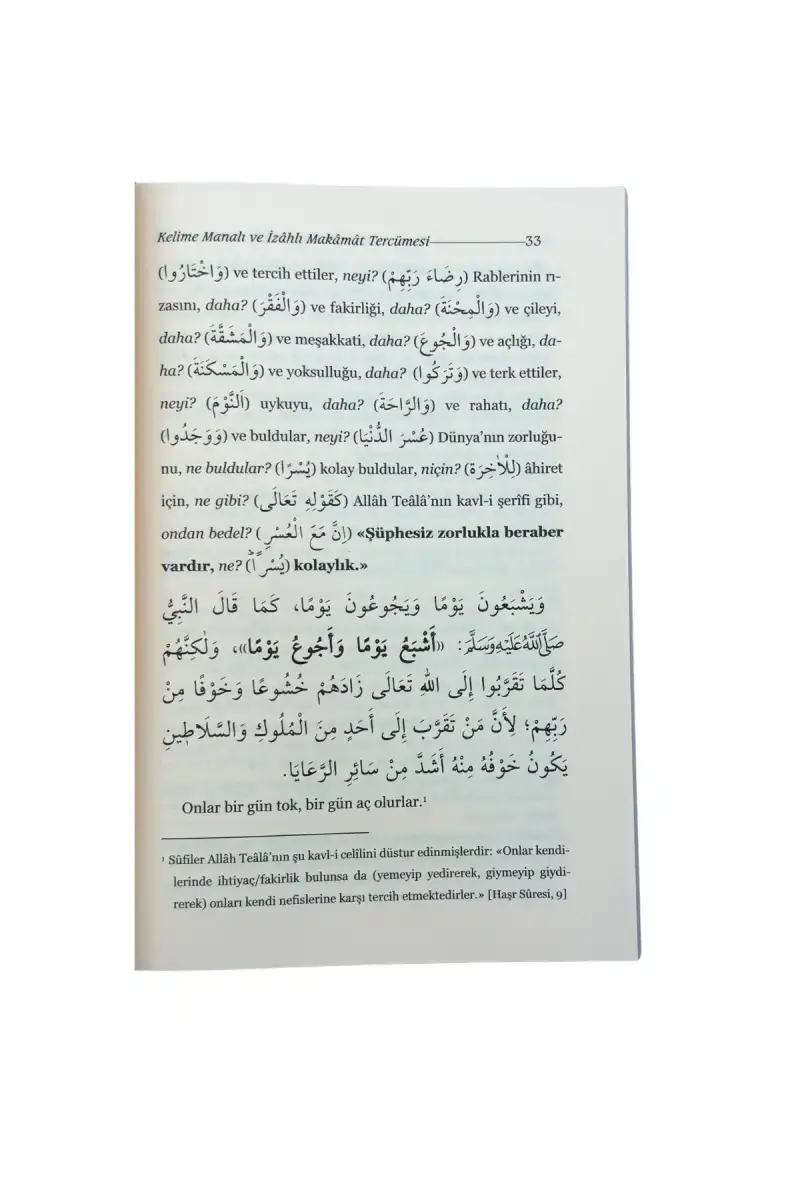 Kelime Manalı ve İzâhlı Makâmât Tercümesi 33
(وَاخْتَارُوا) ve tercih ettiler, neyi? (رِضَاءَ رَبِّهِمْ) Rablerinin rı-
zasını, daha? (وَالْفَقْرَ) ve fakirliği, daha? (وَالْمِحْنَةَ) ve çileyi,
daha? (وَالْمَشَقَّةَ) ve meşakkati, daha? (وَالْجُوعَ) ve açlığı, da-
ha? (وَالْمَسْكَنَةَ) ve yoksulluğu, daha? (وَتَرَكُوا) ve terk ettiler,
neyi? (اَلنَّوْمَ) uykuyu, daha? (وَالرَّاحَةَ) ve rahatı, daha?
(وَوَجَدُوا) ve buldular, neyi? (عُسْرَ الدُّنْيَا) Dünya’nın zorluğu-
nu, ne buldular? (يُسْرًا) kolay buldular, niçin? (لِلْاٰخِرَةِ) âhiret
için, ne gibi? (كَقَوْلِهِ تَعَالَى) Allâh Teâlâ’nın kavl-i şerîfi gibi,
ondan bedel? (اِنَّ مَعَ الْعُسْرِ) «Şüphesiz zorlukla beraber
vardır, ne? (يُسْرًا) kolaylık.»
وَيَشْبَعُونَ يَوْمًا وَيَجُوعُونَ يَوْمًا، كَمَا قَالَ النَّبِيُّ
صَلَّى اللَّهُ عَلَيْهِ وَسَلَّمَ: «أَشْبَعُ يَوْمًا وَأَجُوعُ يَوْمًا»، وَلٰكِنَّهُمْ
كُلَّمَا تَقَرَّبُوا إِلَى اللهِ تَعَالَى زَادَهُمْ خُشُوعًا وَخَوْفًا مِنْ
رَبِّهِمْ؛ لِأَنَّ مَنْ تَقَرَّبَ إِلَى أَحَدٍ مِنَ الْمُلُوكِ وَالسَّلَاطِينِ
يَكُونُ خَوْفُهُ مِنْهُ أَشَدَّ مِنْ سَائِرِ الرَّعَايَا.
Onlar bir gün tok, bir gün aç olurlar.¹
¹ Sûfiler Allâh Teâlâ’nın şu kavl-i celîlini düstur edinmişlerdir: «Onlar kendi-
lerinde ihtiyaç/fakirlik bulunsa da (yemeyip yedirerek, giymeyip giydi-
rerek) onları kendi nefislerine karşı tercih etmektedirler.» [Haşr Sûresi, 9]